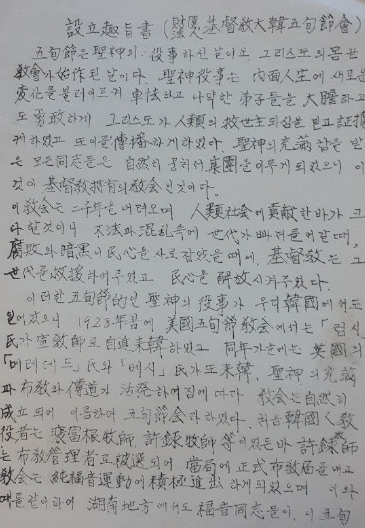 設立趣旨書 (基督敎大韓五旬節會)
五旬節은 聖神의 役事하신 날이오 그리스도의 몸된
敎會가 始作된 날이다. 聖神役事는 內面人生에 새로운
變化를 불러이르켜 卑怯하고 나약한 弟子들을 大膽하고
도 勇敢하게 그리스도가 人類의 救世主되심을 믿고 証據
케하였고 또 이를 傳播하게 하였다. 聖神의 充滿함을 받
은 모든 同志들은 自然히 뭉쳐서 集團을 이루게 되었으니 이
것이 基督敎 敎会인것이다.
이 敎会는 二千年을 내려오며 人類社会에 貢獻한바가 크
다 할것이나 不法과 混乱속에 世代가 빠져들어갈때,
腐敗와 暗黑이 民心을 사로잡았을때에, 基督敎는 그
世代를 救援하여주었고 民心을 解放시켜주었다.
이러한 五旬節的인 聖神의 役事가 우리 韓國에서도
일어났으니 1928年봄에 美國五旬節敎会에서는 「럼시」
民가 宣敎師로 自進来韓하였고 同年가을에는 英國의
「메레데드」民와 「벳시」民가 또 来韓, 聖神의 充滿
과 布敎와 傳道가 活発하여짐에 따라 敎会는 自然히
成立되여 이름하여 五旬節会라 하였다. 처음 韓國人 敎
役者는 裵富根牧師, 許牧師 等이 있든바 許牧師
는 布敎管理者로 被選되여 當局에 正式布敎屆를 내고
敎会는 純福音運動에 積極進出하게 되였으며 이와
때를 같이하여 湖南地方에서도 福音同志들이, 이 五旬